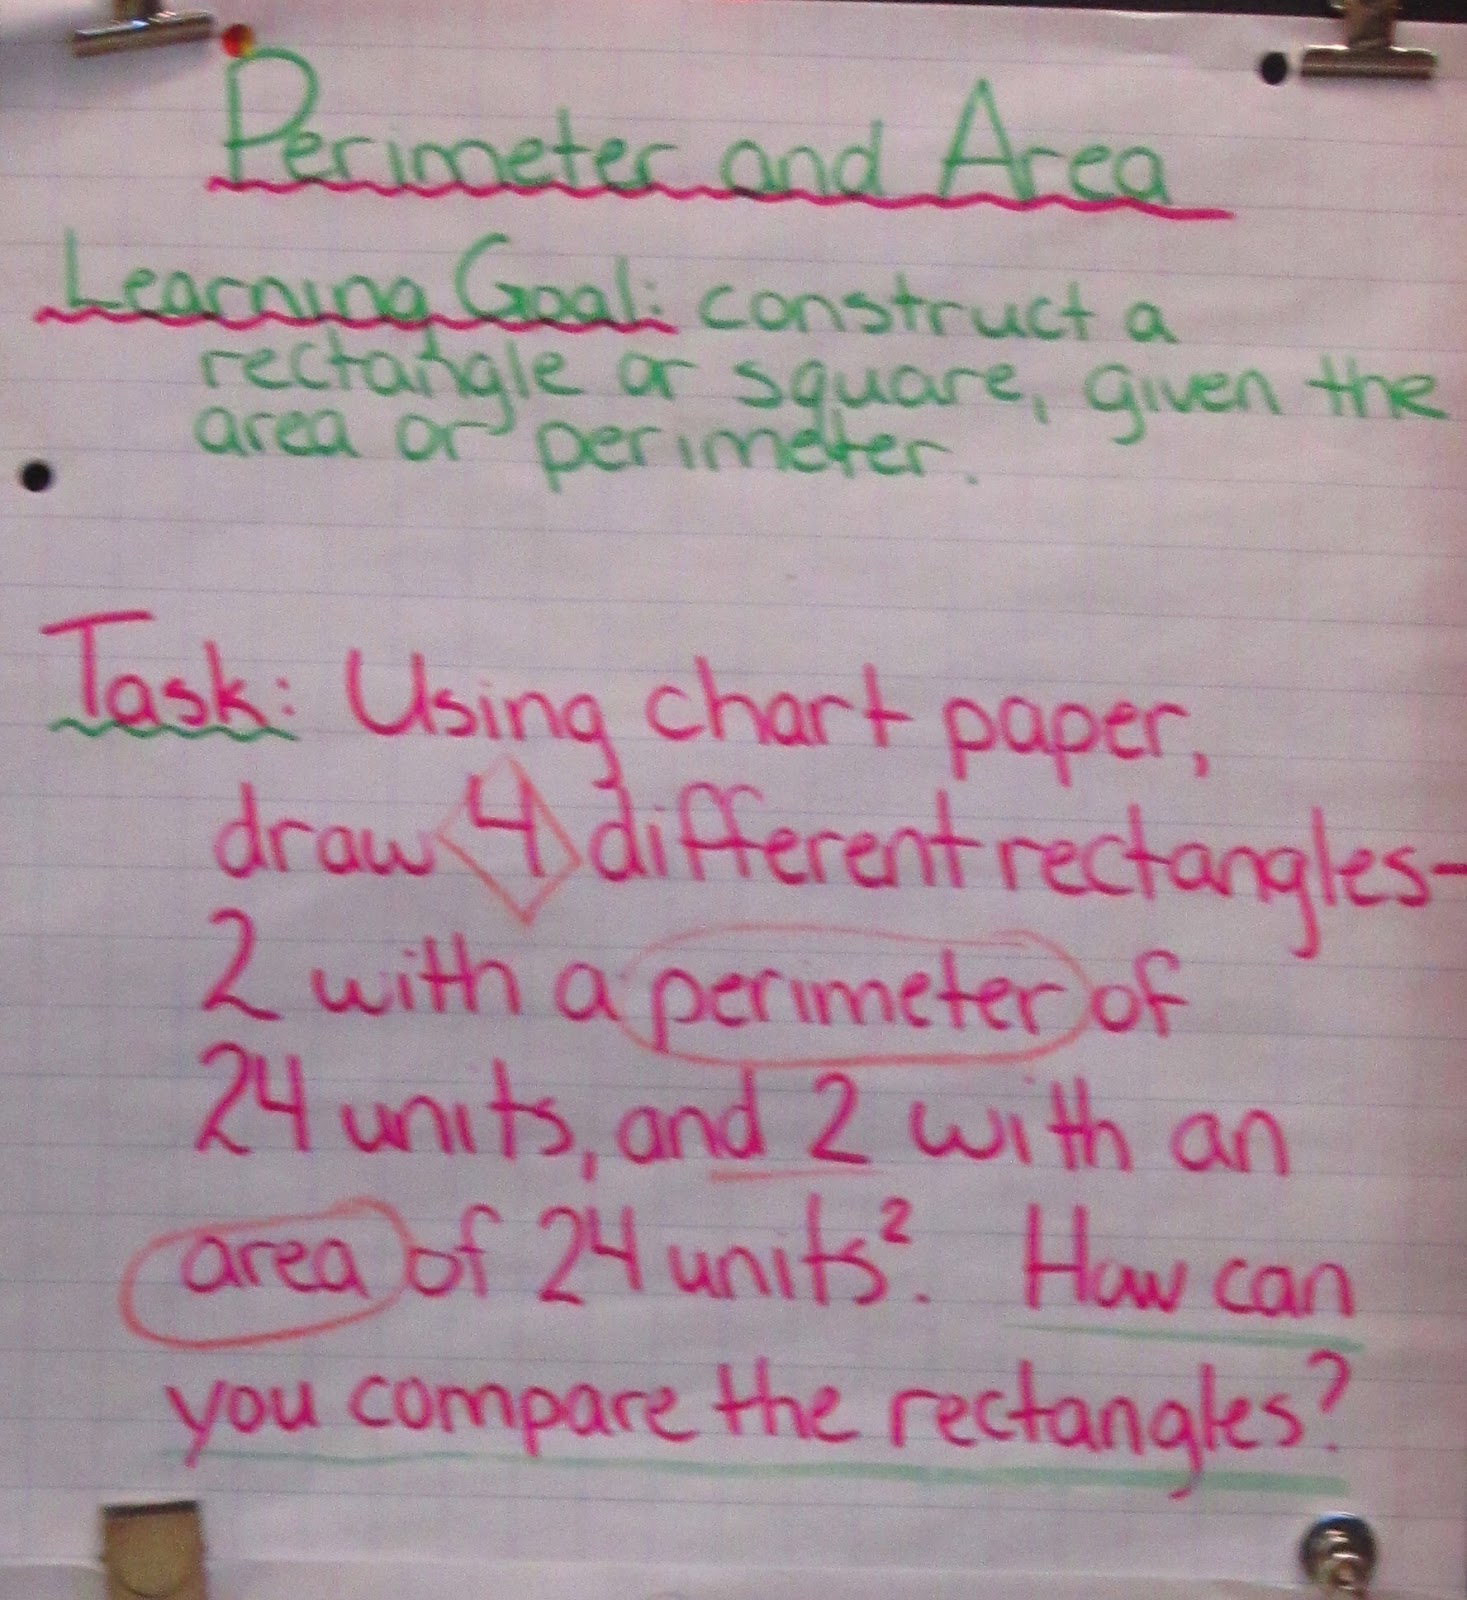 Perimeter and Area
Learning Goal: construct a
rectangle or square, given the
area or perimeter.
Task: Using chart paper,
draw 4 different rectangles-
2 with a perimeter of
24 units, and 2 with an
area of 24 units². How can
you compare the rectangles?